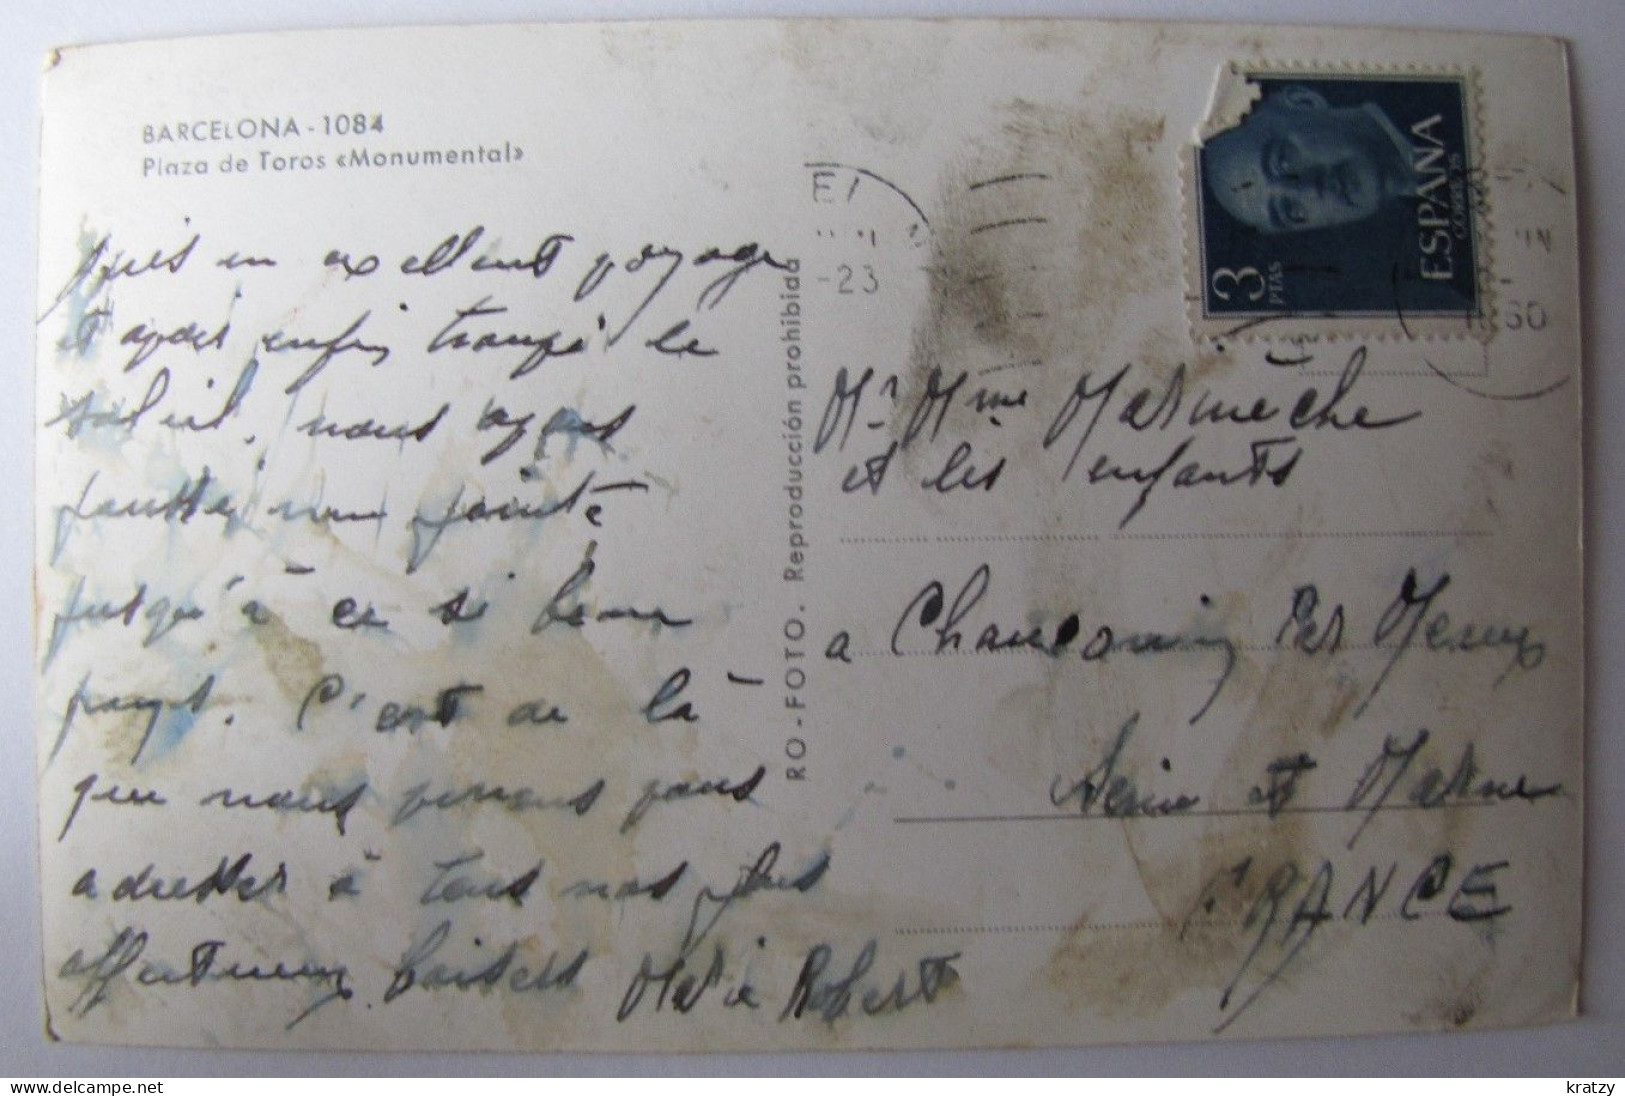 BARCELONA - 1084
Plaza de Toros «Monumental»
après un excellent voyage
et avoir enfin trouvé le
soleil, nous avons
poussé une pointe
jusqu'à ce si beau
pays. C'est de là
que nous pensons pour
adresser à tous nos plus
affectueux baisers Marie Robert
RO - FOTO. Reproducción prohibida
-23
60
3
PTAS
ESPAÑA
CORREOS
Mr Mme Marmèche
et les enfants
a Chauconin Par Meaux
Seine et Marne
FRANCE
kratzy